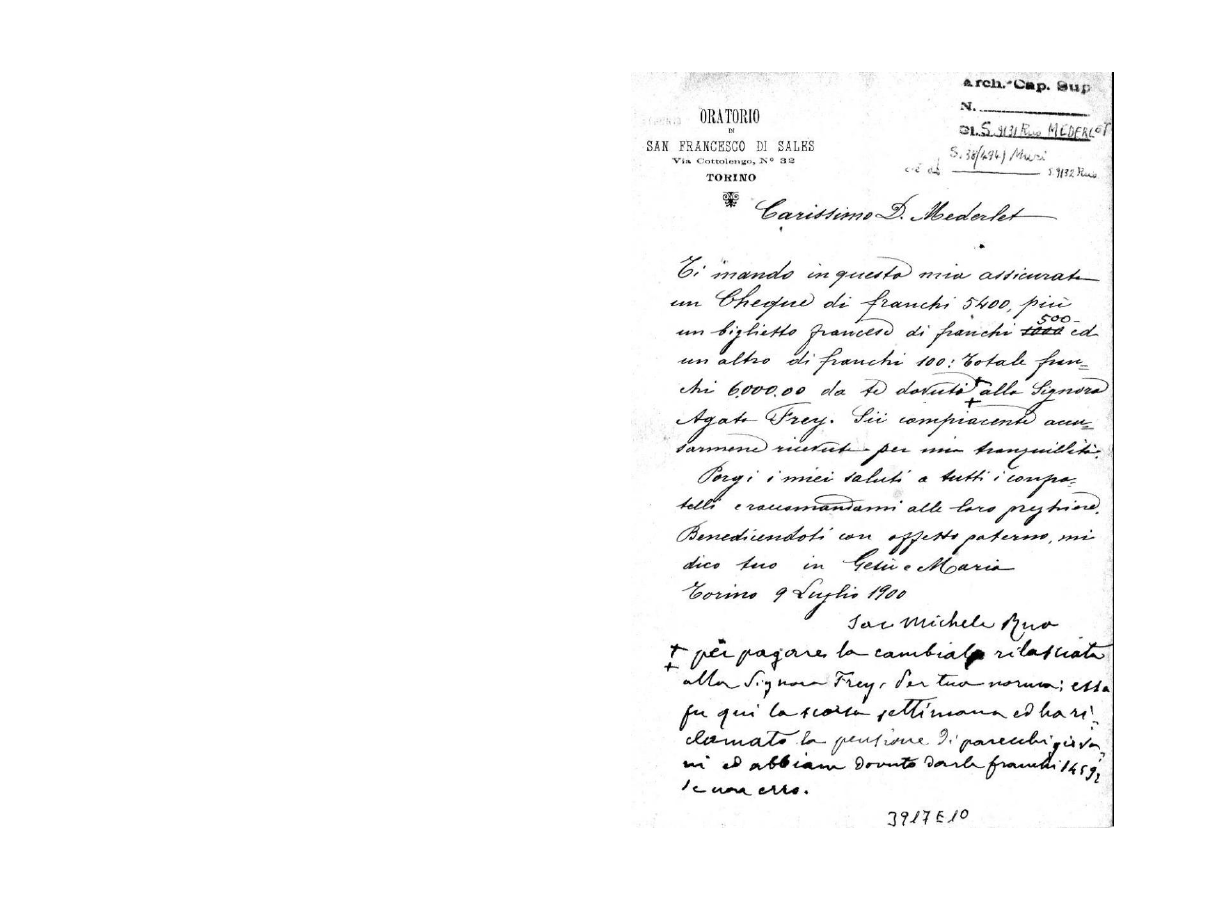 Arch. Cap. Sup
N.
Cl. S. 9131 Rua MEDERLET
S. 38(494) Muri
S 9132 Rua
ORATORIO
DI
SAN FRANCESCO DI SALES
Via Cottolengo, Nº 32
TORINO
Carissimo D. Mederlet
Ti mando in questa mia assicurata
un Cheque di franchi 5400, più
un biglietto francese di franchi 1000 500 - ed
un altro di franchi 100: Totale fran=
chi 6000.00 da te dovuti ‡ alla Signora
Agata Frey. Sii compiacente accu=
sarmene ricevuta per mia tranquillità.
Porgi i miei saluti a tutti i confra=
telli e raccomandami alle loro preghiere.
Benedicendoti con affetto paterno, mi
dico tuo in Gesù e Maria
Torino 9 Luglio 1900
Sac Michele Rua
‡ per pagare la cambiale rilasciata
alla Signora Frey. Per tua norma; essa
fu qui la scorsa settimana ed ha ri=
clamato la pensione di parecchi giova=
ni ed abbiam dovuto darle franchi 1459,
se non erro.
3917E10